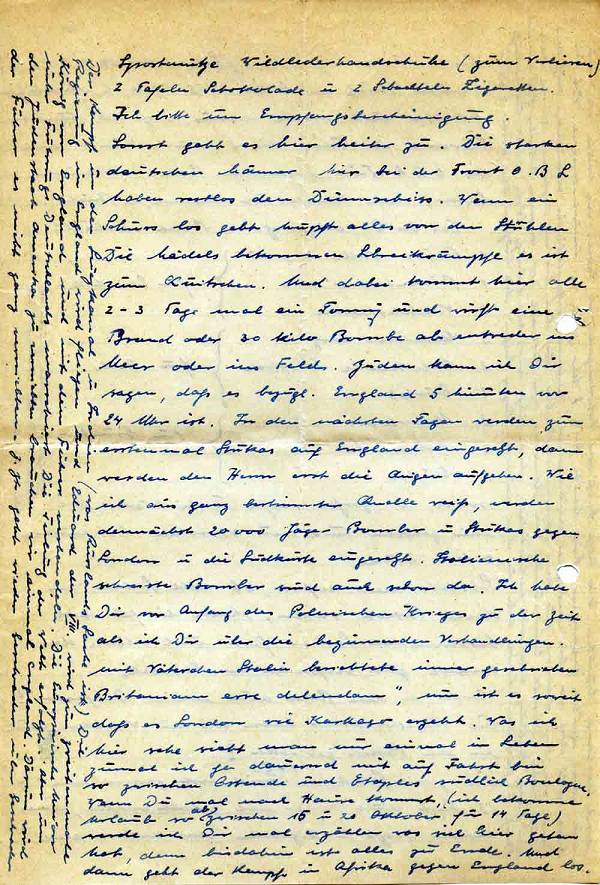 Sportmütze Wildlederhandschuhe (zum Verlieren)
2 Tafeln Schokolade u 2 Schachteln Zigaretten.
Ich bitte um Empfangsbescheinigung.
Sonst geht es hier heiter zu. Die starken
deutschen Männer hier bei der Front O.B L
haben restlos den Dünnschiss. Wenn ein
Schuss los geht hupft alles von den Stühlen
Die Mädels bekommen Schreikrämpfe es ist
zum Quitschen. Und dabei kommt hier alle
2-3 Tage mal ein Tommy und wirft eine
Brand oder 30 Kilo Bombe ab entweder ins
Meer oder ins Feld. Zudem kann ich Dir
sagen, daß es bezgl. England 5 Minuten vor
24 Uhr ist. In den nächsten Tagen werden zum
erstenmal Stukas auf England eingesetzt, dann
werden den Herrn erst die Augen aufgehen. Wie
ich aus ganz bestimmter Quelle weiß, werden
demnächst 20000 Jäger Bomber u Stukas gegen
London u die Südküste angesetzt. Italienische
schwerste Bomber sind auch schon da. Ich habe
Dir vor Anfang des Polnischen Krieges zu der Zeit
als ich Dir über die beginnenden Verhandlungen
mit Väterchen Stalin berichtete immer geschrieben
Britaniam esse delendam", nun ist es soweit
daß es London wie Karthago ergeht. Was ich
hier sehe sieht man nur einmal im Leben
zumal ich ja dauernd mit auf Fahrt bin
so zwischen Ostende und Etaples südlich Boulogne.
wenn Du mal nach Hause kommst, (ich bekomme
Urlaub so ab zwischen 15 u 20 Oktober für 14 Tage)
werde ich Dir mal erzählen was sich hier getan
hat, denn bis dahin ist alles zu Ende. Und
dann geht der Kampf in Afrika gegen England los.
Der Kampf um den Suezkanal u Indien (was Russlands Sache ist) Die
Regierung in England wird fliegen und Eduard der VIII. wird zum zweitenmale
König von England und mit dem Führer verhandeln. Die Europäische Union
unter Führung Deutschlands marschiert. Die Teilung der Welt erfolgt. Aber um
den Judenstaat Amerika zu vernichten brauchen wir einmal England. Darum wird
der Führer es nicht ganz vernichten. Jetzt geht wieder